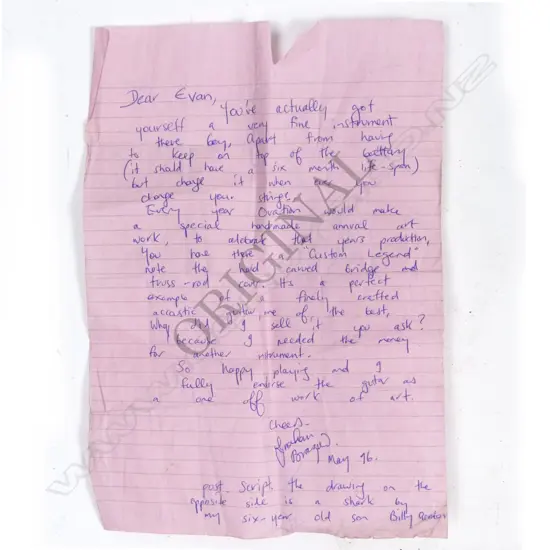 Dear Evan,
You've actually got
yourself a very fine instrument
there boy, apart from having
to keep on top of the battery
(it should have a six month life-span)
but change it when ever you
change your strings.
Every year Ovation would make
a special handmade annual art
work, to celebrate that years production,
You have there a "Custom Legend"
note the hand carved bridge and
truss-rod cover. Its a perfect
example of a finely crafted
accoustic guitar, one of the best,
Why did I sell it you ask?
because I needed the money
for another instrument.
So happy playing and I
fully endorse the guitar as
a one off work of art.
Cheers.
Graham
May 96.
post-script. the drawing on the
opposite side is a shark by
my six-year old son Billy
ORIGINAL